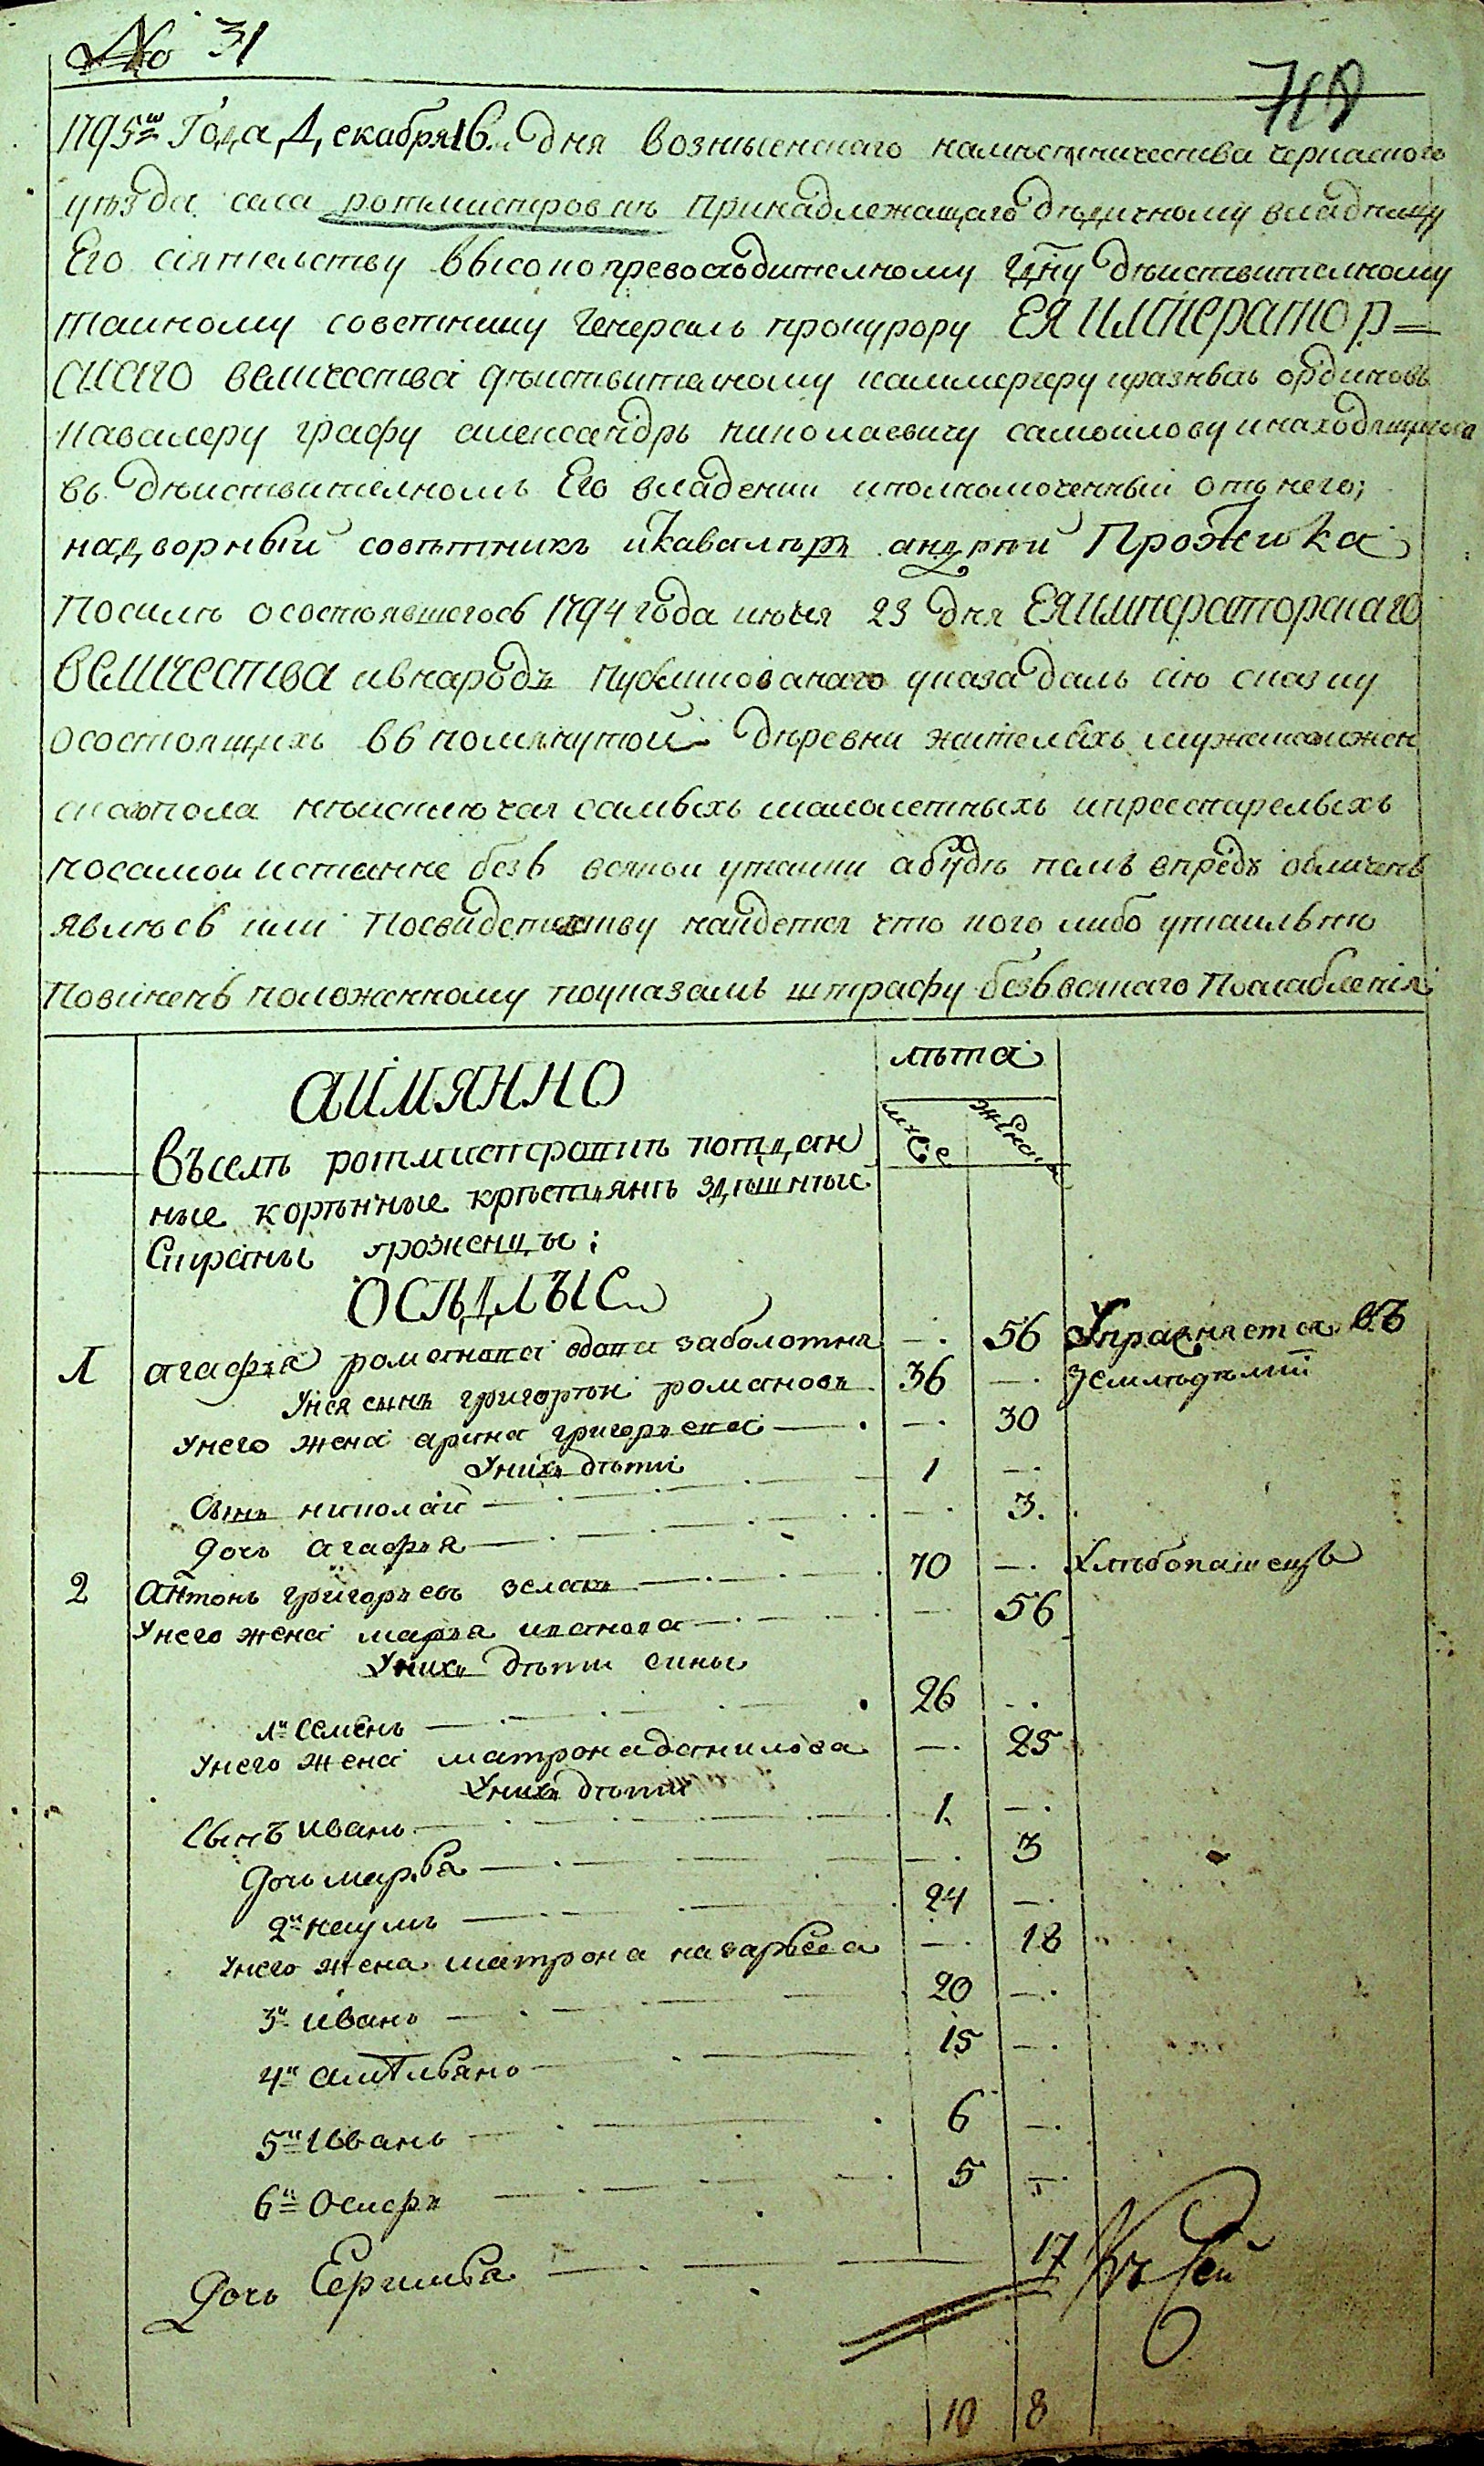 № 31
1795го Года Декабря 16. Дня вознысенскаго намѣстничества черкаского
уѣзда села ротмистровкъ принадлежащаго дѣдичному владѣлцу
Его сіятельству высокопревосходителному гдну дѣиствителному
таиному советнику генералъ прокурору ЕЯ ИМПЕРАТОР=
СКАГО величества дѣиствителному каммергеру иразныхъ ординовъ
кавалеру графу александръ николаевичу самоилову инаходящагося
въ дѣиствителномъ Его владении иполномоченный отъ него;
надворный совѣтникъ икавалѣръ андрѣй Прожика
Посилѣ осостоявшегось 1794 года июня 23 дня ЕЯ ИМПЕРАТОРСКАГО
ВЕЛИЧЕСТВА ивнародъ публикованаго указа далъ сію сказку
осостоящихъ въ помянутой дѣревни жителѣхъ мужеска ижен
скагопола неисключая самыхъ малолетныхъ ипрестарелыхъ
посамои истинне безъ всякои утаики абудѣ чемъ впредъ обличенъ
явлюсь или Посвидетелству наидется что кого либо утаилъ то
Повиненъ положенному поуказамъ штрафу безъ всякаго Послабленія
лѣта
АИМЯННО
муж женск
Въселѣ ротмистравкѣ потдан
ные корѣнные крѣстиянѣ здѣшные
Стираны урожеенцы;
ОСѢДЛЫЕ
1 агафия романова вдова заболотна — 56 Упражняется въ
Унея сынъ григорѣи романовъ 36 — земледѣлии
Унего жена арина григорьева — 30
Унихъ дѣти
Сынъ николаи 1 —
Дочь агафия — 3.
2 антонъ григорьевъ зелакъ 70 — Хлѣбопашецъ
Унего жена марья иванова — 56
Унихъ дѣти сины
1й семенъ 26 —
Унего жена матрона данилова — 25
Унихъ дѣти
Сынъ иванъ 1 —
Дочь марья — 3
2й наумъ 24 —
Унего жена матрона назарьева — 18
3й иванъ 20 —
4й амельянъ 15 —
5й иванъ 6 —
6й осифъ 5 —
Дочь — 17
10 8